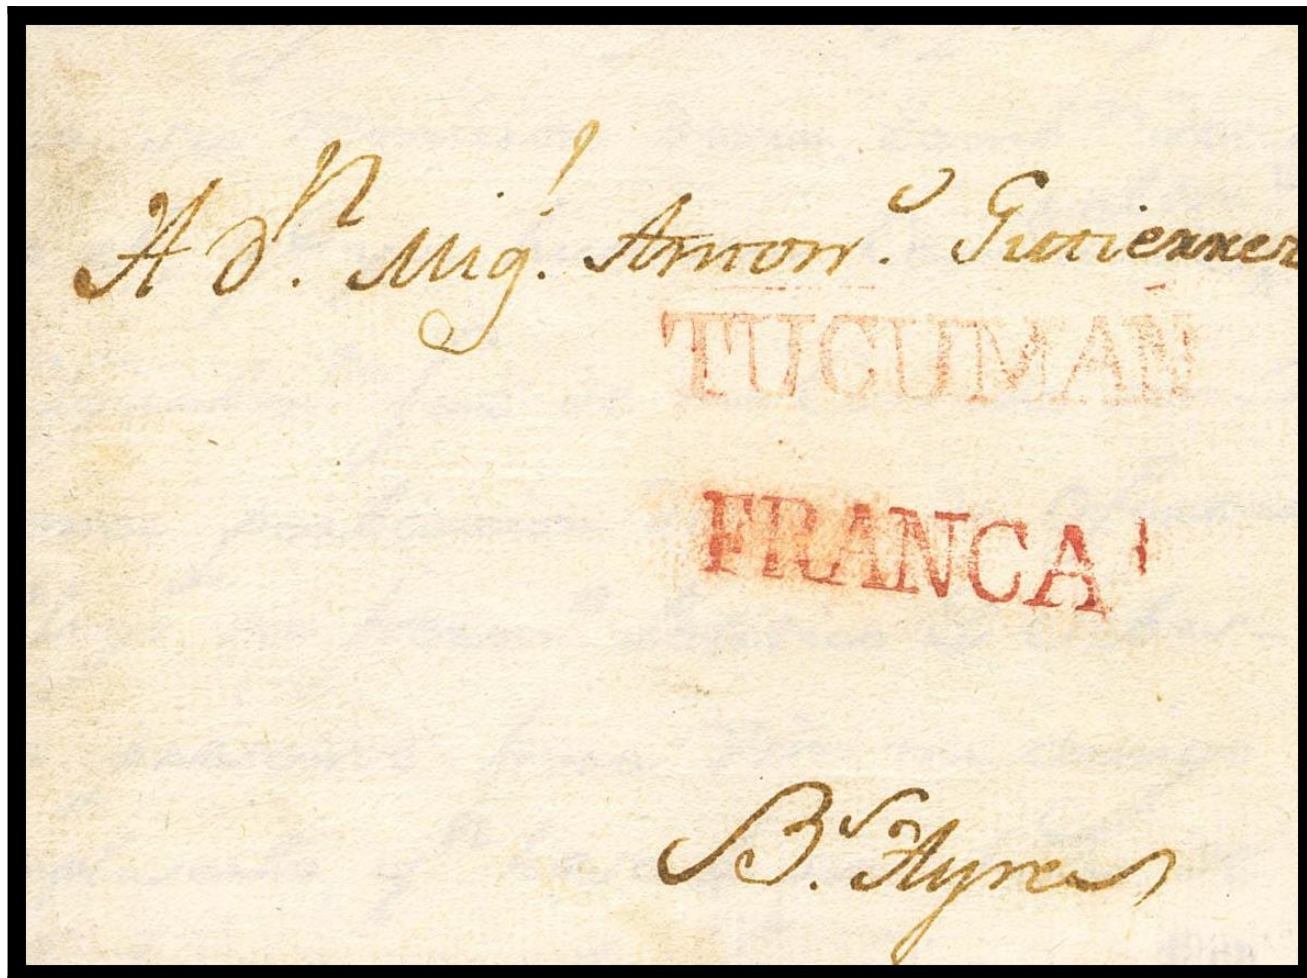 A Dⁿ. Migˡ. Antonº. Gutierrez
TUCUMAN
FRANCA
Bˢ. Ayres